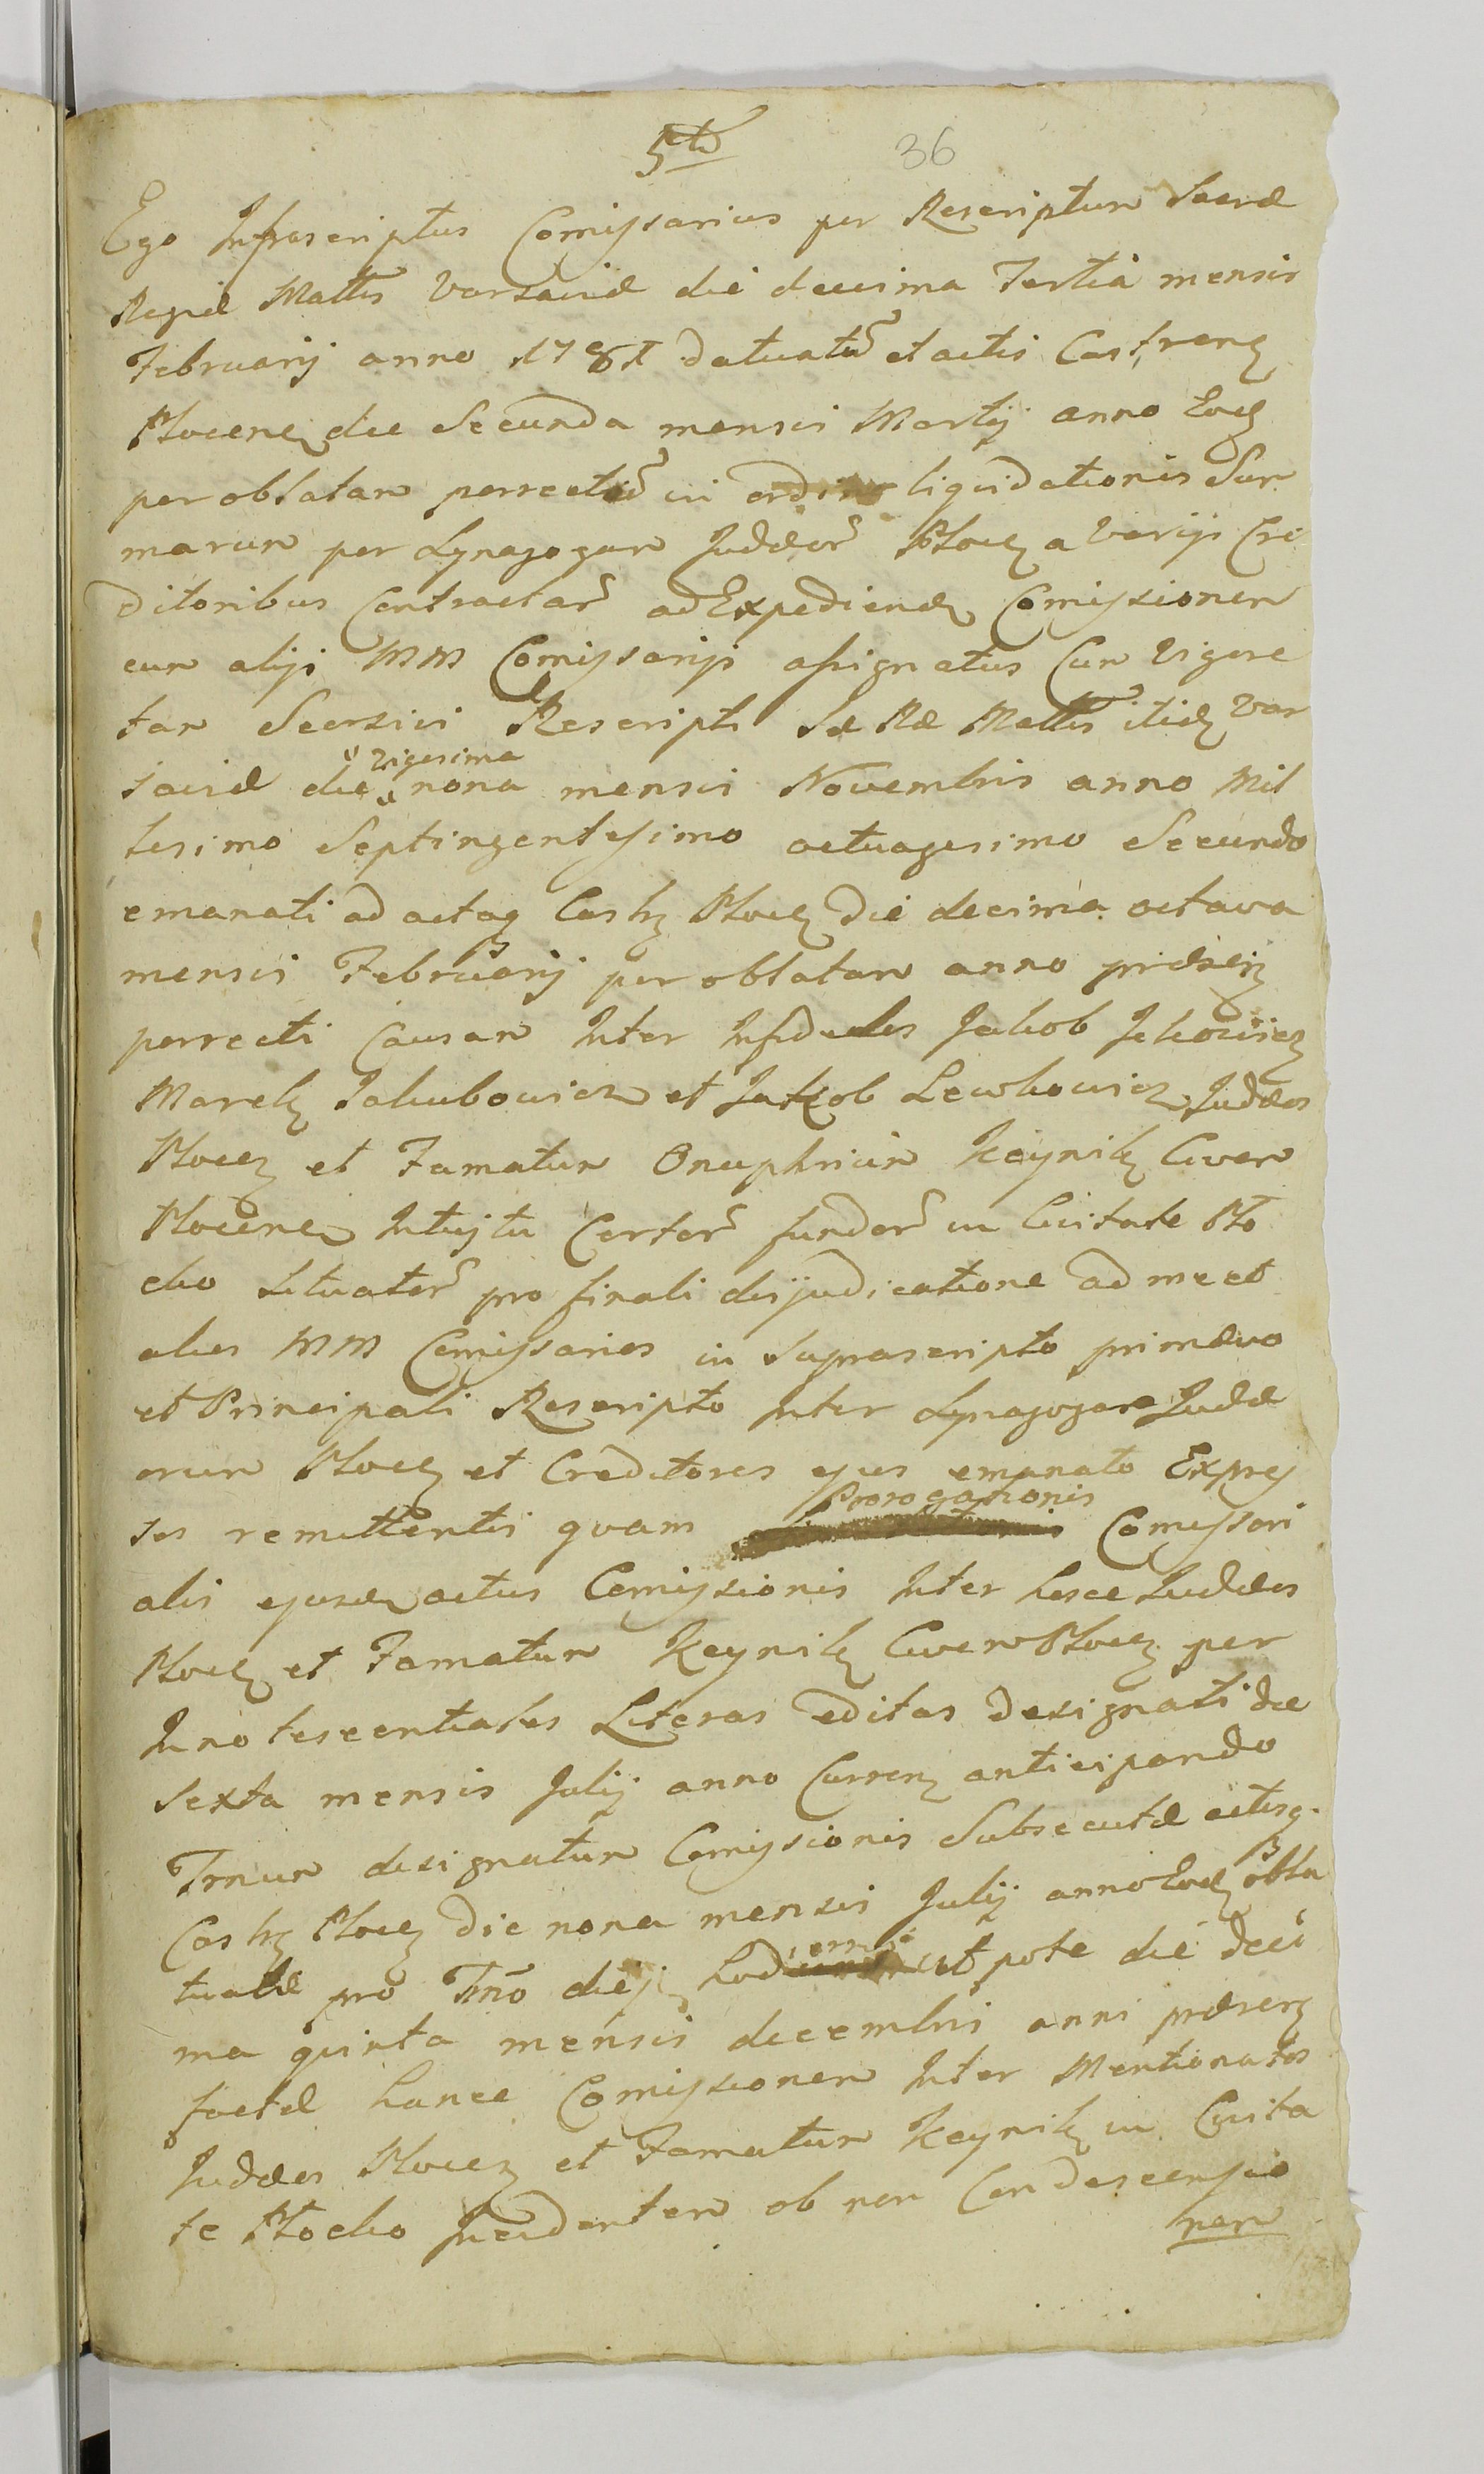 5to
36
Ego Infrascriptus Comissarius per Rescriptum Sacræ
Regiæ Mattis Varsaviæ die decima Tertia mensis
Februarij anno 1781 datuatũ et actis Castrenz
Plocenz die Secunda mensis Martij anno Eodz
per oblatam porrectũ in ordine liquidationis Sum
marum per Synagogam Judæorz Plocz a varijs Cre
ditoribus Contractarz ad Expediendz Comissionem
cum alijs MM Comissarijs assignatus Cum Vigore
tam Secessivi Rescripti Sæ Ræ Mattis itidz Var
saviæ die vigesima nona mensis Novembris anno Mil
lesimo Septingentesimo octuagesimo Secundo
emanati ad actaq Castrz Plocz die decima octava
mensis Februarij per oblatam anno præsenz
porrecti Causam Inter Infideles Jakob Ickowicz
Marek Jakubowicz et Jakob Lewkowicz Judæos
Plocz et Famatum Onuphrium Keynik Civem
Plocenz Intuitu Certorz fundorz in Civitate Plo
cko Situatorz pro finali dijudicatione ad me et
alios MM Comissarios in Suprascripto primævo
et Principali Rescripto Inter Synagogam Judæ
orum Plocz et Creditores ejus emanato Expres
ses remittentis quam Prorogationis Comissori
alis ejusdem actus Comissionis Inter hosce Judæos
Plocz et Famatum Keynik Civem Plocz per
Innotescentiales Literas editas designati die
Sexta mensis Julij anno Currenz anticipando
Trnum designatum Comissionis Subsecutæ actisq.
Castrz Plocz die nona mensis Julij anno Eodz obla
tuatæ pro Trno diej hodierni utpote die deci
ma quinta mensis decembris anni præsenz
factæ hance Comissionem Inter Mentionatos
Judæos Plocz et Famatum Keynik in Civita
te Plocko Incidentem ob non Condescensio
nem